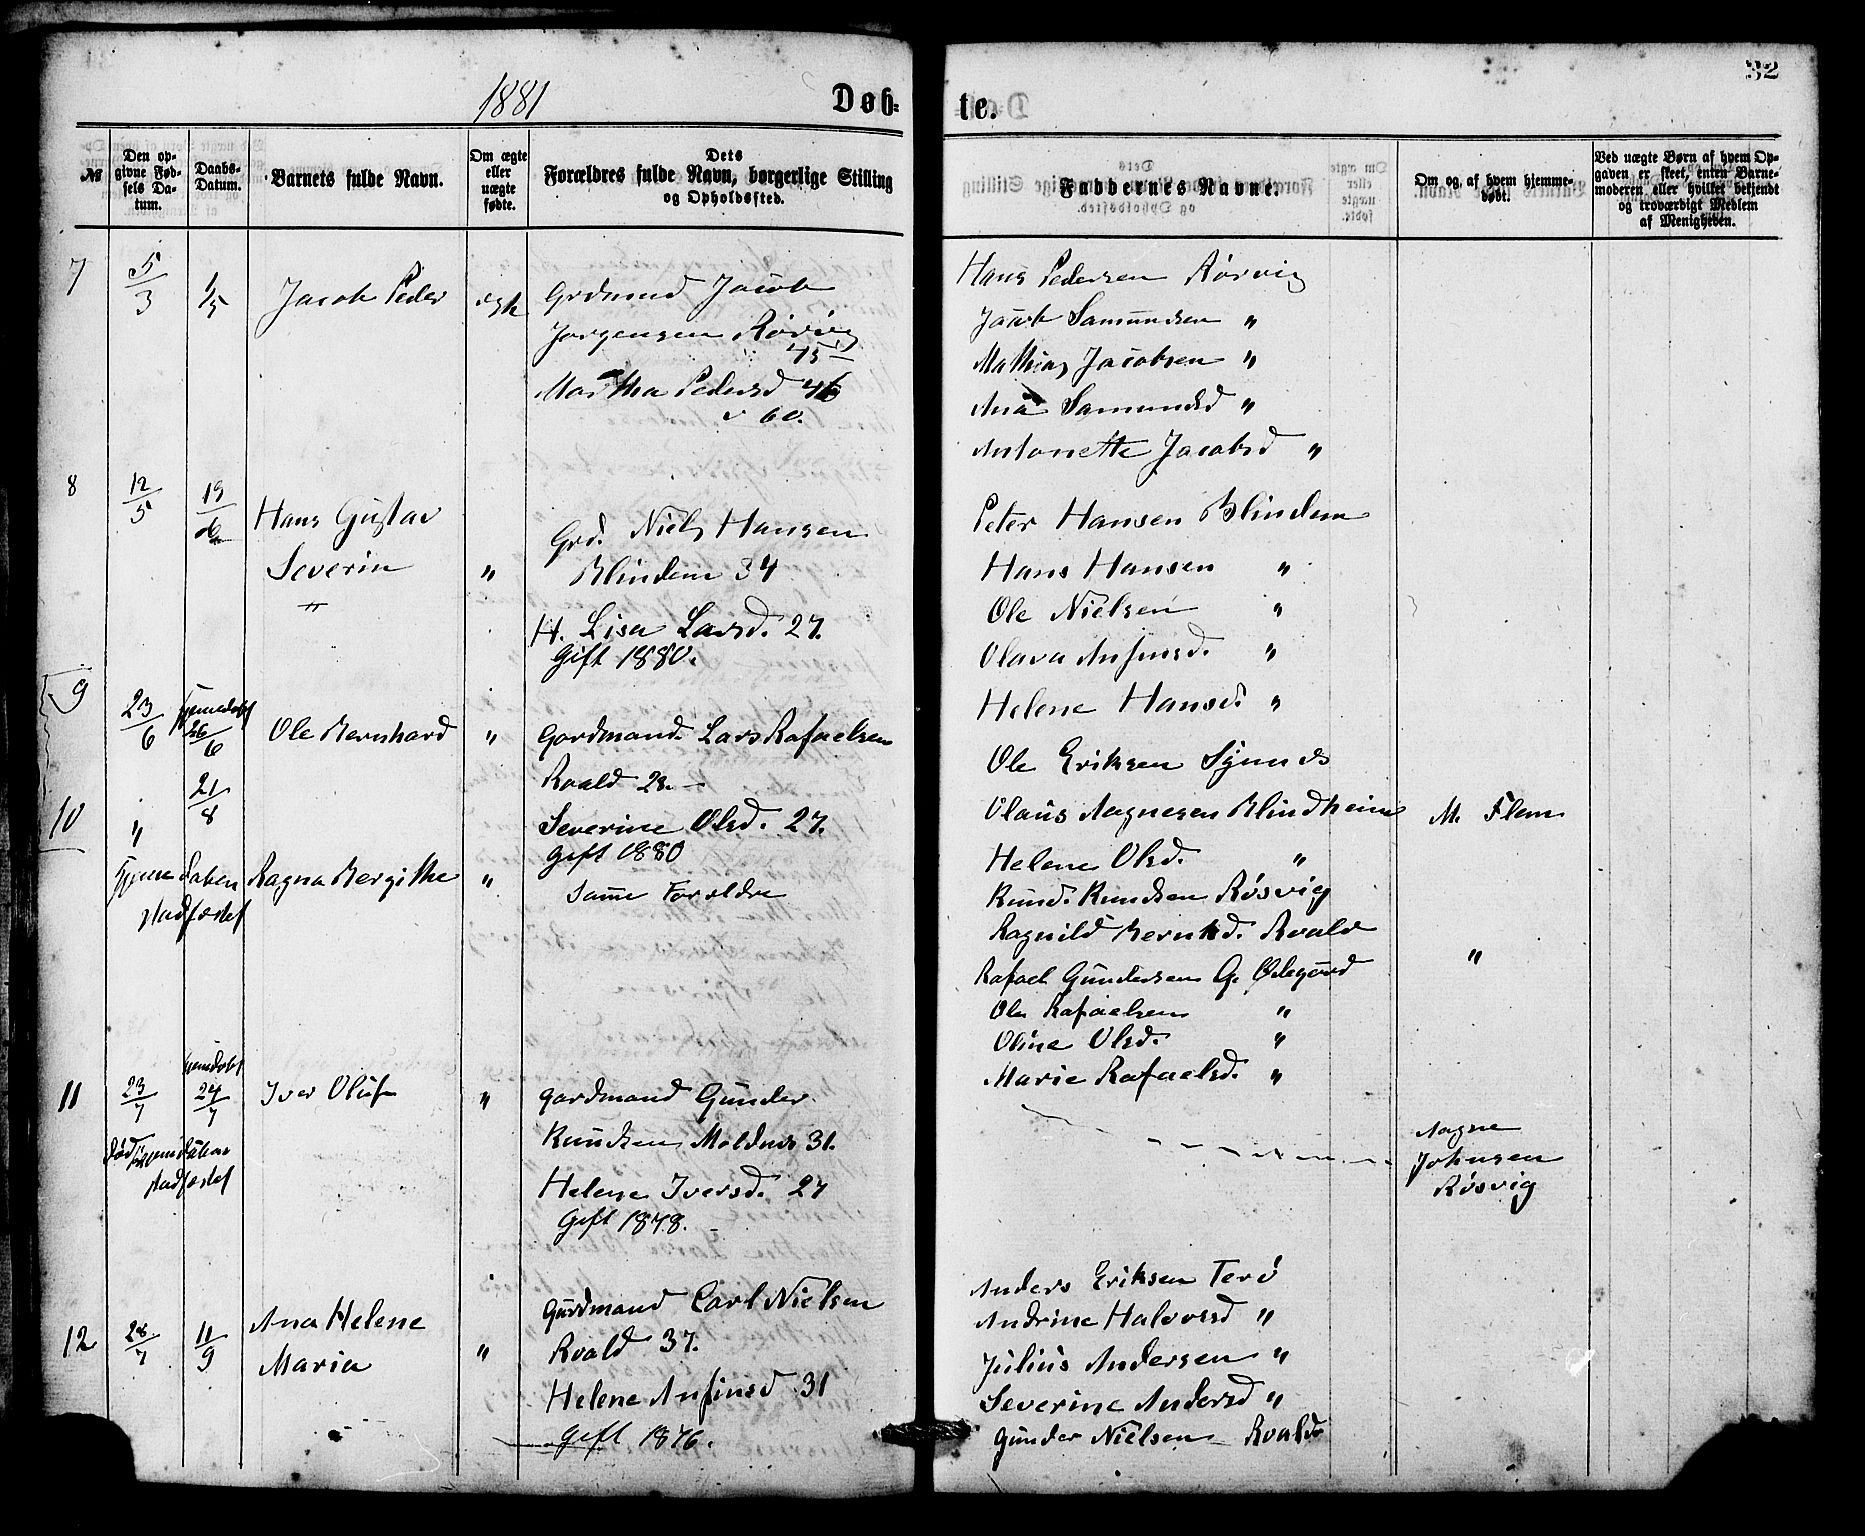 1881
Døb-
te.
32
№
Den op-
givne Fød-
sels Da-
tum.
Daabs-
Datum.
Barnets fulde Navn.
Om ægte
eller
uægte
fødte.
Dets
Forældres fulde Navn, borgerlige Stilling
og Opholdssted.
Faddernes Navne.
Om og af hvem hjemme-
døbt.
Ved uægte Børn af hvem Op-
gaven er skeet, enten Barne-
moderen eller hvilket bekjendt
og troværdigt Medlem
af Menigheden.
7
5/3
1/5
Jacob Peder
ægte
Grdmand Jacob
Jørgensen Røsvig
45
Martha Pedersd 46
60.
Hans Pedersen Røsvig
Jacob Samundsen "
Mathias Jacobsen "
Ana Samundsd "
Antonette Jacobsd "
8
12/5
19/6
Hans Gustav
Severin
"
"
Grd. Niels Hansen
Blindem 34
H. Lisa Larsd. 27.
Gift 1880.
Peter Hansen Blindem
Hans Hansen "
Ole Nielsen "
Olava Anfinsd. "
Helene Hansd. "
9
23/6
hjemedøbt
26/6
21/8
Ole Bernhard
"
Gardmand Lars Rafaelsen
Roald 28.
Severine Olsd. 27.
Gift 1880
Ole Eriksen Synnes
Olaus Aagnesen Blindheim
M. Flem
Helene Olsd. "
Knud. Knudsen Røsvig
Ragnild Berntsd. Roald
10
"
Hjemedaaben
stadfæstet
Ragna Bergithe
"
Samme Forældre
Rafael Gundersen G. Ødegård
"
Ole Rafaelsen "
Oline Olsd. "
Marie Rafaelsd. "
11
23/7
hjemdøbt
24/7
Iver Oluf
"
Gardmand Gunder
Knudsen Moldnes 31.
Helene Iversd. 27
Gift 1878.
Død før hjemdåben
stadfæstet
Aagne
Johnsen
Røsvig
12
28/7
11/9
Ana Helene
Maria
"
Gardmand Carl Nielsen
Roald 37.
Helene Anfinsd 31
Gift 1876.
Anders Eriksen Terø
Andrine Halvorsd "
Julius Andersen "
Severine Andersd "
Gunder Nielsen Roald